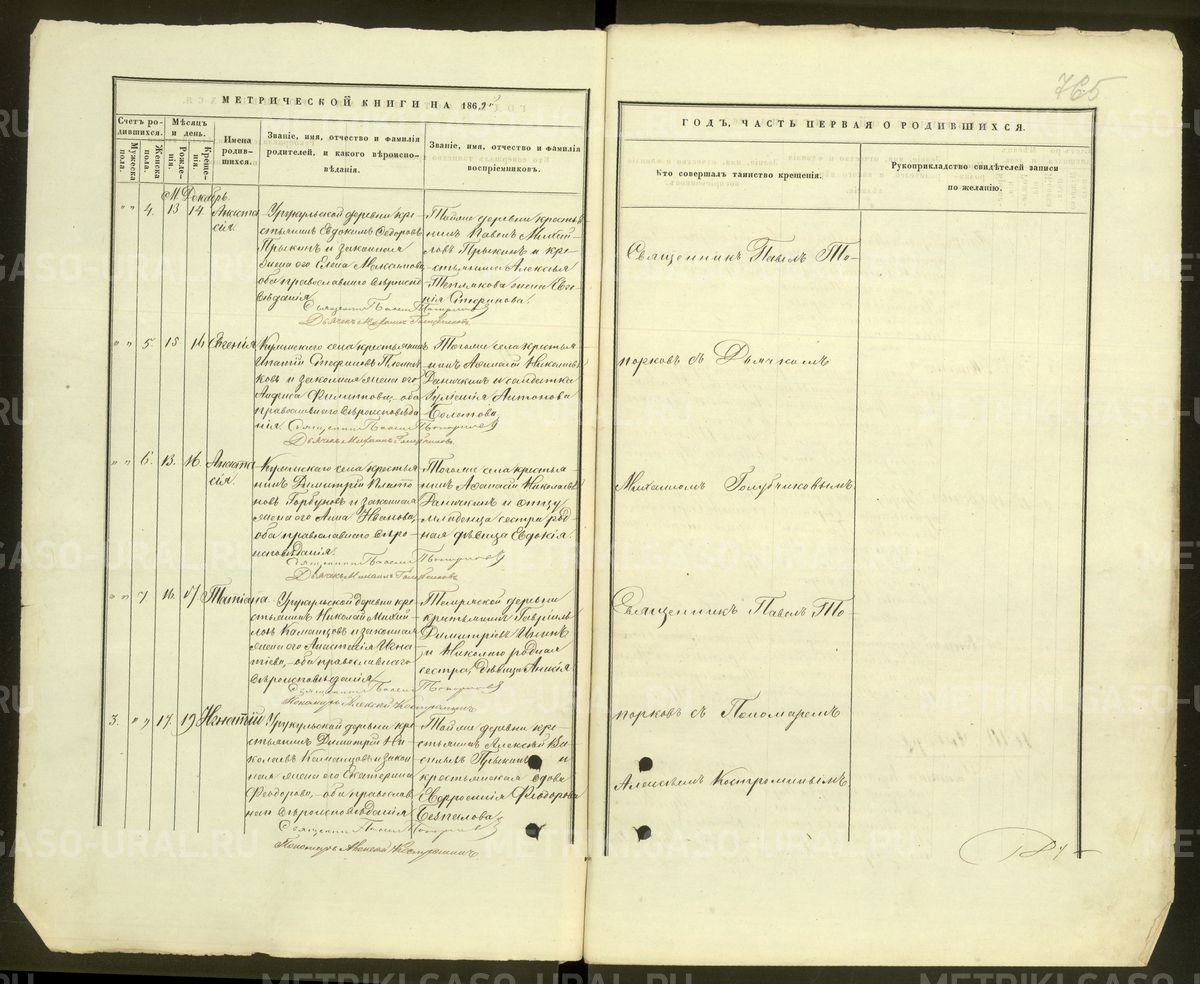 765
МЕТРИЧЕСКОЙ КНИГИ НА 1862й
Счетъ родившихся.
Мужеска пола.
Женска пола.
Мѣсяцъ и день.
Рожденія.
Крещенія.
Имена родившихся.
Званіе, имя, отчество и фамилія родителей, и какого вѣроисповѣданія.
Званіе, имя, отчество и фамилія воспріемниковъ.
М. Декабрь.
" " 4. 13 14. Анастасія.
Уруkульской деревни крестьянинъ Евдокимъ Ѳедоровъ
Прыкинъ и законная
жена его Елена Максимова
оба православнаго вѣроисповѣданія.
Тойже деревни крестьянинъ Павелъ Михайловъ Прыкинъ и
Алексѣя
Теплякова жена Евгенія Стефанова.
Священникъ Павелъ Топорковъ
Дьячекъ Михаилъ Голубчиковъ
" " 5. 15. 16 Евгенія
села крестьянинъ
Ипатій Стефановъ
и законная жена его
Филиппова, оба
православнаго вѣроисповѣданія.
Тогоже села крестьянинъ Аѳанасій Николаевъ
Даничкинъ и солдатка
Антонова
Болотова.
Священникъ Павелъ Топорковъ
Дьячекъ Михаилъ Голубчиковъ
" " 6. 13. 16. Анастасія.
села крестьянинъ Димитрій Платоновъ Горбуновъ и законная
жена его Анна Иванова,
оба православнаго вѣроисповѣданія.
Тогоже села крестьянинъ Аѳанасій Николаевъ
Даничкинъ и отцу
младенца сестра родная дѣвица Евдокія.
Священникъ Павелъ Топорковъ
Дьячекъ Михаилъ Голубчиковъ
" " 7. 16. 17 Татіана
Урукульской деревни крестьянинъ Николай Михайловъ Каманцовъ и законная
жена его Анастасія Игнатіева, оба православнаго
вѣроисповѣданія.
деревни
крестьянинъ Гавріилъ
Димитріевъ
и Николаю родная
сестра, дѣвица Анисія
Священникъ Павелъ Топорковъ
Пономарь Алексѣй Костроминъ
3. " " 17. 19 Игнатій
Урукульской деревни крестьянинъ Димитрій Николаевъ Каманцовъ и законная жена его Екатерина
Ѳеодорова, оба православнаго вѣроисповѣданія
Тойже деревни крестьянинъ Алексѣй Васильевъ Прыкинъ и
крестьянская вдова
Евфросинія Ѳеодорова
Безпалова.
Священникъ Павелъ Топорковъ
Пономарь Алексѣй Костроминъ
ГОДЪ, ЧАСТЬ ПЕРВАЯ О РОДИВШИХСЯ.
Кто совершалъ таинство крещенія.
Рукоприкладство свидѣтелей записи по желанію.
Священникъ Павелъ То-
порковъ съ Дьячкомъ
Михаиломъ Голубчиковымъ.
Священникъ Павелъ То-
порковъ съ Пономаремъ
Алексѣемъ Костроминымъ.
METRIKI.GASO-URAL.RU